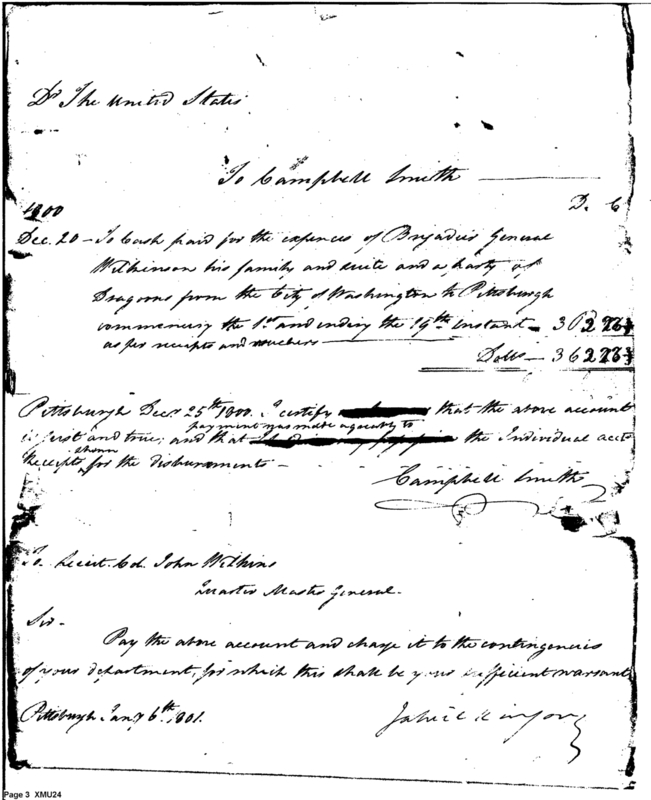 Dr The United States
To Campbell Smith
1800
D. C
Dec. 20 - To Cash paid for the expences of Brigadier General
Wilkinson his family and suite and a party of
Dragoons from the City of Washington to Pittsburgh
commencing the 1st and ending the 19th Instant -
as per receipts and vouchers
Dolls -
Pittsburgh Decr 25th 1800. I certify that the above account
is just and true; and that payment was made agreeably to the Individual accts
Receipts shown for the disbursments -
Campbell Smith
To Lieut. Col. John Wilkins
Quarter Master General.
Sir -
Pay the above account and charge it to the contingencies
of your department, for which this shall be your sufficient warrant
Pittsburgh Jany 6th 1801.
Page 3 XMU24